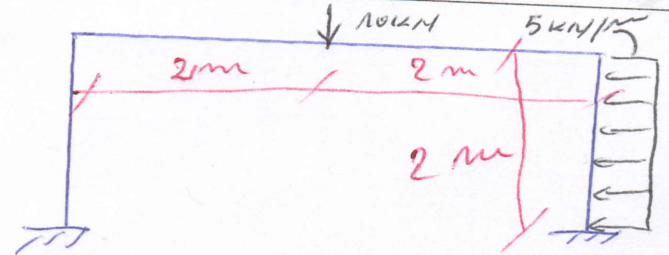 10KN 5KN/m
2m 2m
2m